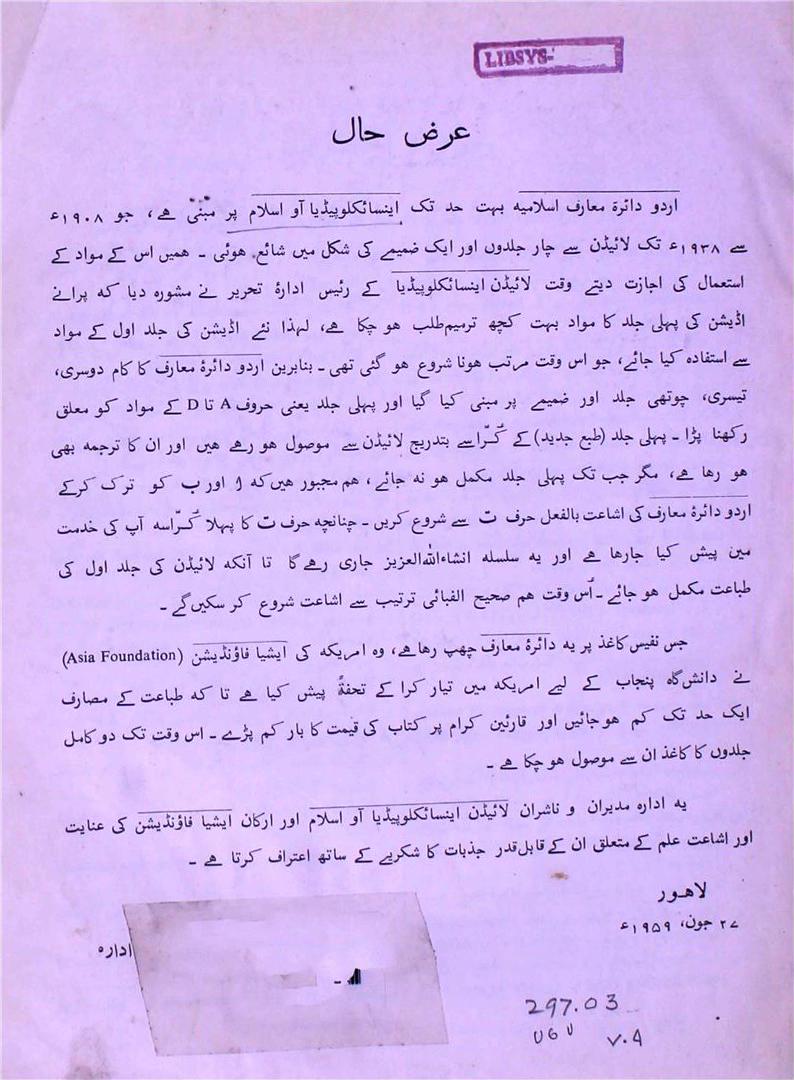 LIBSYS-
عرض حال
اردو دائرۂ معارف اسلامیہ بہت حد تک اینسائکلوپیڈیا آو اسلام پر مبنی ہے، جو ۱۹۰۸ء
سے ۱۹۳۸ء تک لائیڈن سے چار جلدوں اور ایک ضمیمے کی شکل میں شائع ہوئی ۔ ہمیں اس کے مواد کے
استعمال کی اجازت دیتے وقت لائیڈن اینسائکلوپیڈیا کے رئیس ادارۂ تحریر نے مشورہ دیا کہ پرانے
اڈیشن کی پہلی جلد کا مواد بہت کچھ ترمیم‌طلب ہو چکا ہے، لہذا نئے اڈیشن کی جلد اول کے مواد
سے استفادہ کیا جائے، جو اس وقت مرتب ہونا شروع ہو گئی تھی ۔ بنابریں اردو دائرۂ معارف کا کام دوسری،
تیسری، چوتھی جلد اور ضمیمے پر مبنی کیا گیا اور پہلی جلد یعنی حروف A تا D کے مواد کو معلق
رکھنا پڑا ۔ پہلی جلد (طبع جدید) کے کُرّاسے بتدریج لائیڈن سے موصول ہو رہے ہیں اور ان کا ترجمہ بھی
ہو رہا ہے، مگر جب تک پہلی جلد مکمل ہو نہ جائے، ہم مجبور ہیں کہ ا اور ب کو ترک کرکے
اردو دائرۂ معارف کی اشاعت بالفعل حرف ت سے شروع کریں ۔ چنانچہ حرف ت کا پہلا کُرّاسہ آپ کی خدمت
میں پیش کیا جارہا ہے اور یہ سلسلہ انشاءاللہ‌العزیز جاری رہے گا تا آنکہ لائیڈن کی جلد اول کی
طباعت مکمل ہو جائے ۔ اُس وقت ہم صحیح الفبائی ترتیب سے اشاعت شروع کر سکیں گے ۔
جس نفیس کاغذ پر یہ دائرۂ معارف چھپ رہا ہے، وہ امریکہ کی ایشیا فاؤنڈیشن (Asia Foundation)
نے دانش‌گاہ پنجاب کے لیے امریکہ میں تیار کرا کے تحفۃً پیش کیا ہے تا کہ طباعت کے مصارف
ایک حد تک کم ہو جائیں اور قارئین کرام پر کتاب کی قیمت کا بار کم پڑے ۔ اس وقت تک دو کامل
جلدوں کا کاغذ ان سے موصول ہو چکا ہے ۔
یہ ادارہ مدیران و ناشران لائیڈن اینسائکلوپیڈیا آو اسلام اور ارکان ایشیا فاؤنڈیشن کی عنایت
اور اشاعت علم کے متعلق ان کے قابل‌قدر جذبات کا شکریے کے ساتھ اعتراف کرتا ہے ۔
لاہور
۲۷ جون، ۱۹۵۹ء
ادارہ
297.03
UGU V.4